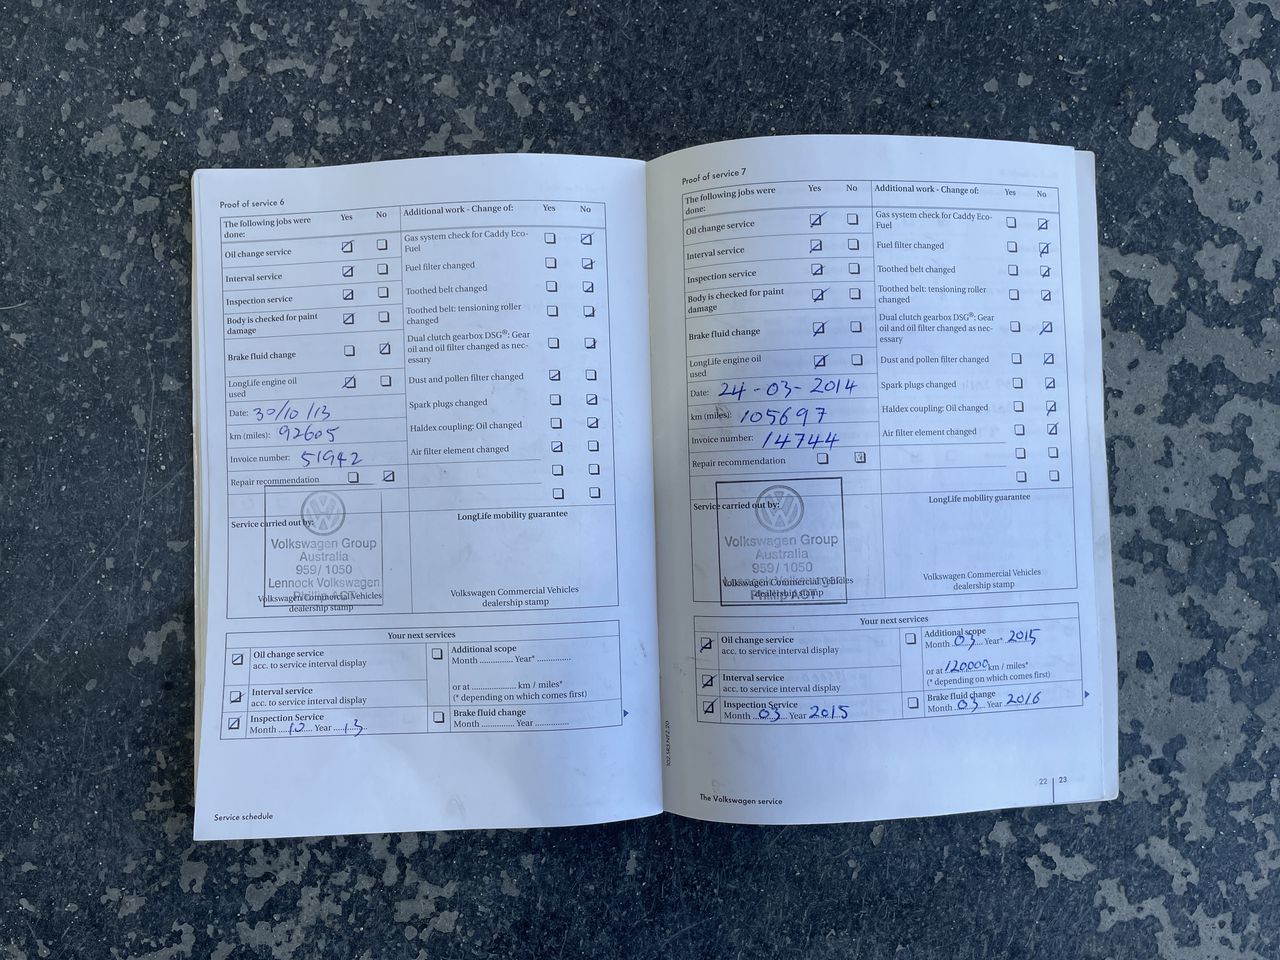 Proof of service 6
The following jobs were done: Yes No
Oil change service
Interval service
Inspection service
Body is checked for paint damage
Brake fluid change
LongLife engine oil used
Date: 30/10/13
km (miles): 92605
Invoice number: 51942
Repair recommendation
Additional work - Change of: Yes No
Gas system check for Caddy Eco-
Fuel
Fuel filter changed
Toothed belt changed
Toothed belt: tensioning roller
changed
Dual clutch gearbox DSG®: Gear
oil and oil filter changed as nec-
essary
Dust and pollen filter changed
Spark plugs changed
Haldex coupling: Oil changed
Air filter element changed
Service carried out by:
Volkswagen Group
Australia
959/ 1050
Lennock Volkswagen
Phillip ACT
Volkswagen Commercial Vehicles
dealership stamp
LongLife mobility guarantee
Volkswagen Commercial Vehicles
dealership stamp
Your next services
Oil change service
acc. to service interval display
Interval service
acc. to service interval display
Inspection Service
Month Year 13
Additional scope
Month ............. Year* .............
or at ................. km / miles*
(* depending on which comes first)
Brake fluid change
Month ............. Year .............
Service schedule
Proof of service 7
The following jobs were
done: Yes No
Oil change service
Interval service
Inspection service
Body is checked for paint
damage
Brake fluid change
LongLife engine oil
used
Date: 24-03-2014
km (miles): 105697
Invoice number: 14744
Repair recommendation
Additional work - Change of: Yes No
Gas system check for Caddy Eco-
Fuel
Fuel filter changed
Toothed belt changed
Toothed belt: tensioning roller
changed
Dual clutch gearbox DSG®: Gear
oil and oil filter changed as nec-
essary
Dust and pollen filter changed
Spark plugs changed
Haldex coupling: Oil changed
Air filter element changed
Service carried out by:
Volkswagen Group
Australia
959/ 1050
Phillip ACT
Volkswagen Commercial Vehicles
dealership stamp
LongLife mobility guarantee
Volkswagen Commercial Vehicles
dealership stamp
Your next services
Oil change service
acc. to service interval display
Interval service
acc. to service interval display
Inspection Service
Month 03 Year 2015
Additional scope
Month 03 Year* 2015
or at 120000 km / miles*
(* depending on which comes first)
Brake fluid change
Month 03 Year 2016
The Volkswagen service
22 | 23